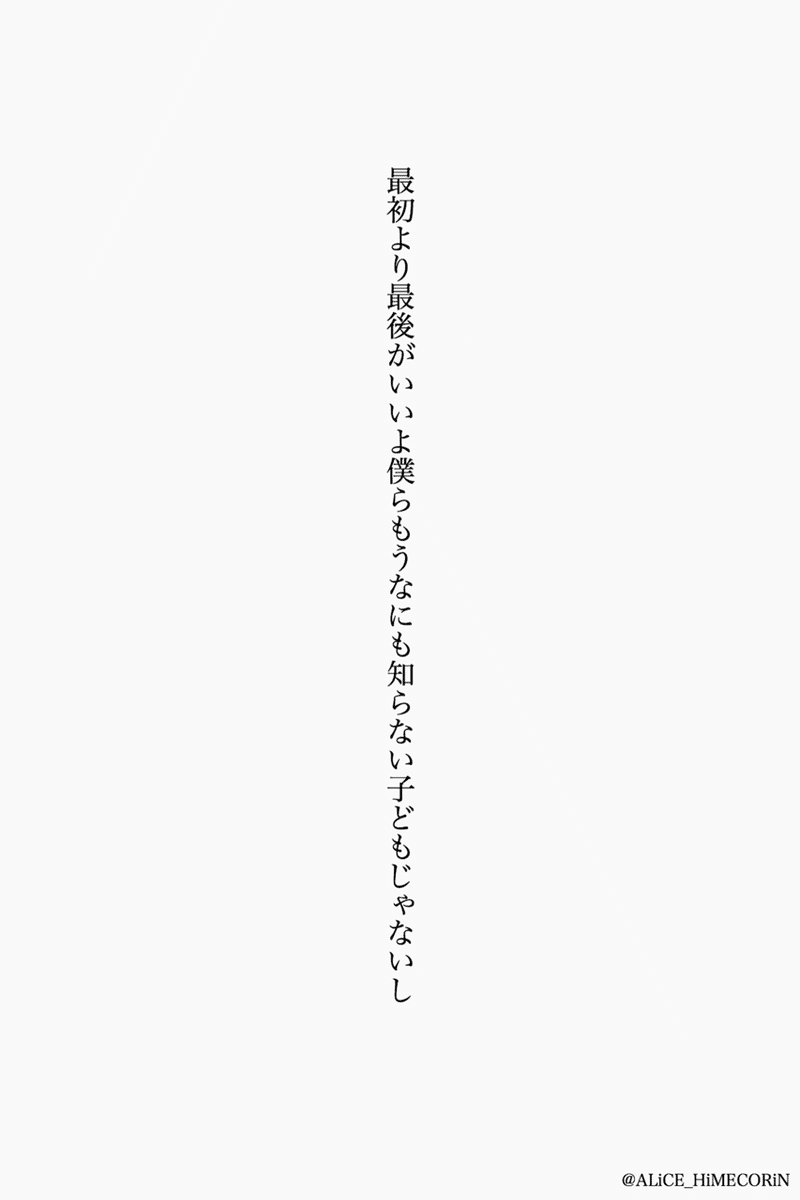 最初より最後がいいよ僕らもうなにも知らない子どもじゃないし
@ALiCE_HiMECORiN